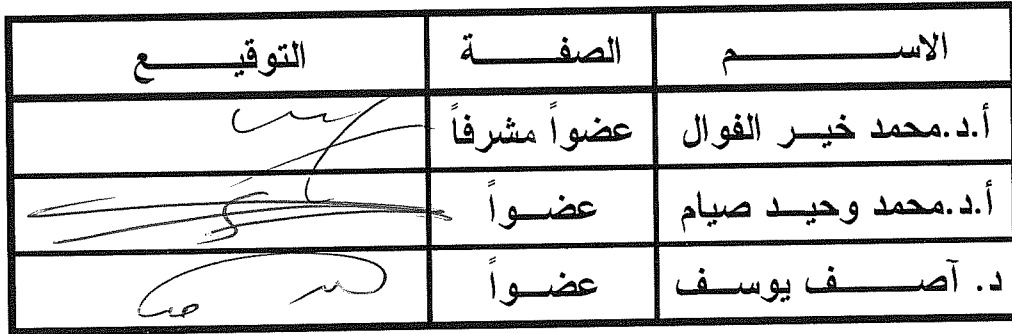 الاســـم الصفـــة التوقيـــع
أ.د.محمد خيـر الفوال عضواً مشرفاً
أ.د.محمد وحيـد صيام عضـواً
د. آصـــف يوسـف عضـواً